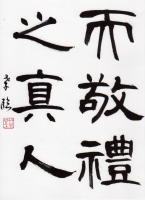 而敬禮
之真人